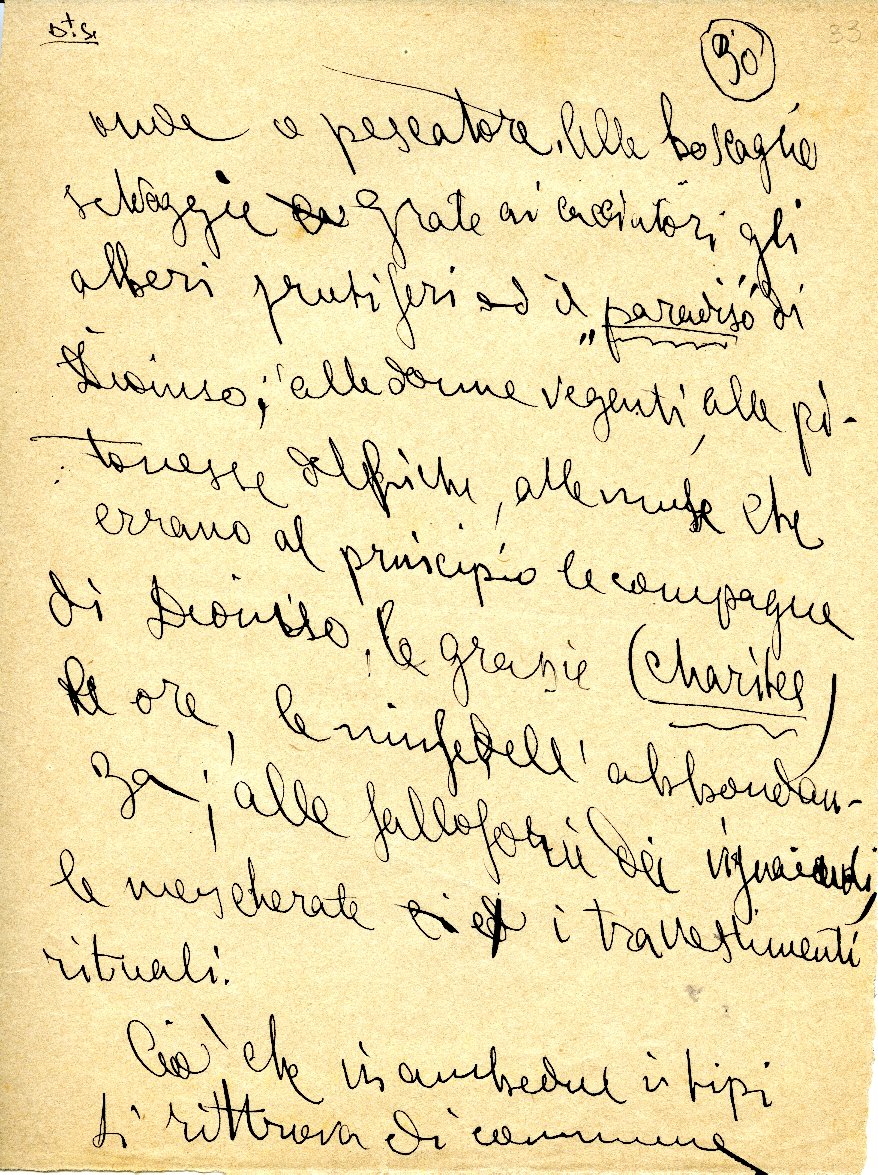 D†Si
30
33
onde e pescatore. Alle boscaglie
selvaggie grate ai cacciatori gli
alberi frutiferi ed il „paradiso" di
Dioniso; alle donne vegenti, alle pi-
tonesse delfiche, alle muse che
errano al principio le compagne
di Dioniso, le grazie (Charites)
le ore, le ninfe dell' abbondan-
za; alle falloforie dei vignaiuoli,
le mascherate ed i travestimenti
rituali.
Ciò che in ambedue i tipi
si rittrova di commune